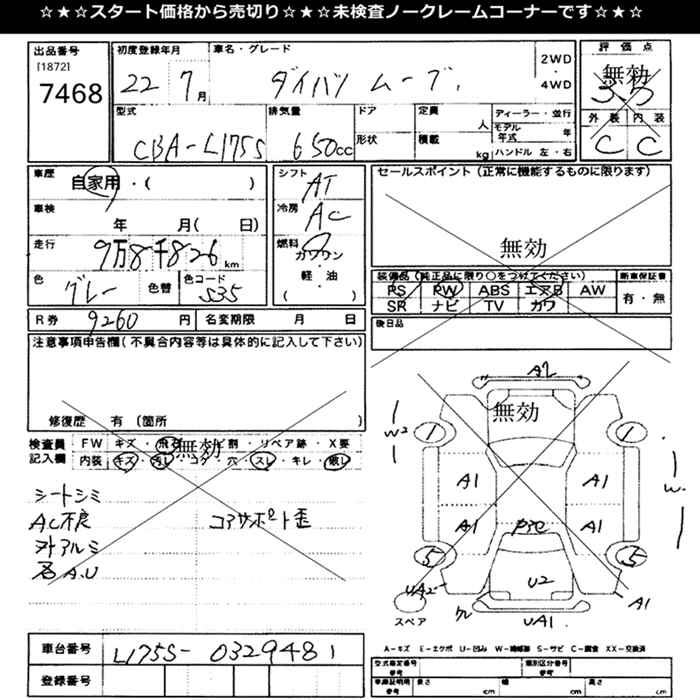 ☆★☆★スタート価格から売切り☆★☆★未検査ノークレームコーナーです☆★☆
出品番号
[1872]
7468
初度登録年月
22年 7月
車名・グレード
ダイハツ ムーブ
2WD
・
4WD
評価点
無効
3.5
外装 内装
C C
型式
CBA-L175S
排気量
650cc
ドア
形状
定員
人
積載
kg
ディーラー・並行
モデル年式 年
ハンドル 左・右
車歴
自家用・( )
車検
年 月( 日)
走行
9万8千826km
色
グレー
色替
色コード
S35
シフト
AT
冷房
AC
燃料
ガソリン
軽・油
( )
セールスポイント(正常に機能するものに限ります)
無効
装備品(純正品に限り○をつけてください)
PS PW ABS エアB AW
SR ナビ TV カワ
新車保証書
有・無
後日品
R券 9260円
名変期限 月 日
注意事項申告欄(不具合内容等は具体的に記入して下さい)
修復歴 有(箇所
検査員記入欄
FW キズ・飛石・ヒビ割・リペア跡・X要
内装 キズ・汚れ・コゲ・穴・スレ・キレ・
無効
シートシミ
AC不良
コアサポート歪
外アルミ
各A.U
無効
A2
W2
1
1
A1
A1
W
A1
A1
5
5
UA2
U2
A1
UA1
スペア
A-キズ E-エクボ U-凹み W-補修跡 S-サビ C-腐食 XX-交換済
車台番号
L175S-0329481
登録番号
型式指定番号
参考
類別区分番号
参考
車庫証明用
参考
長さ cm
幅 cm
高さ cm